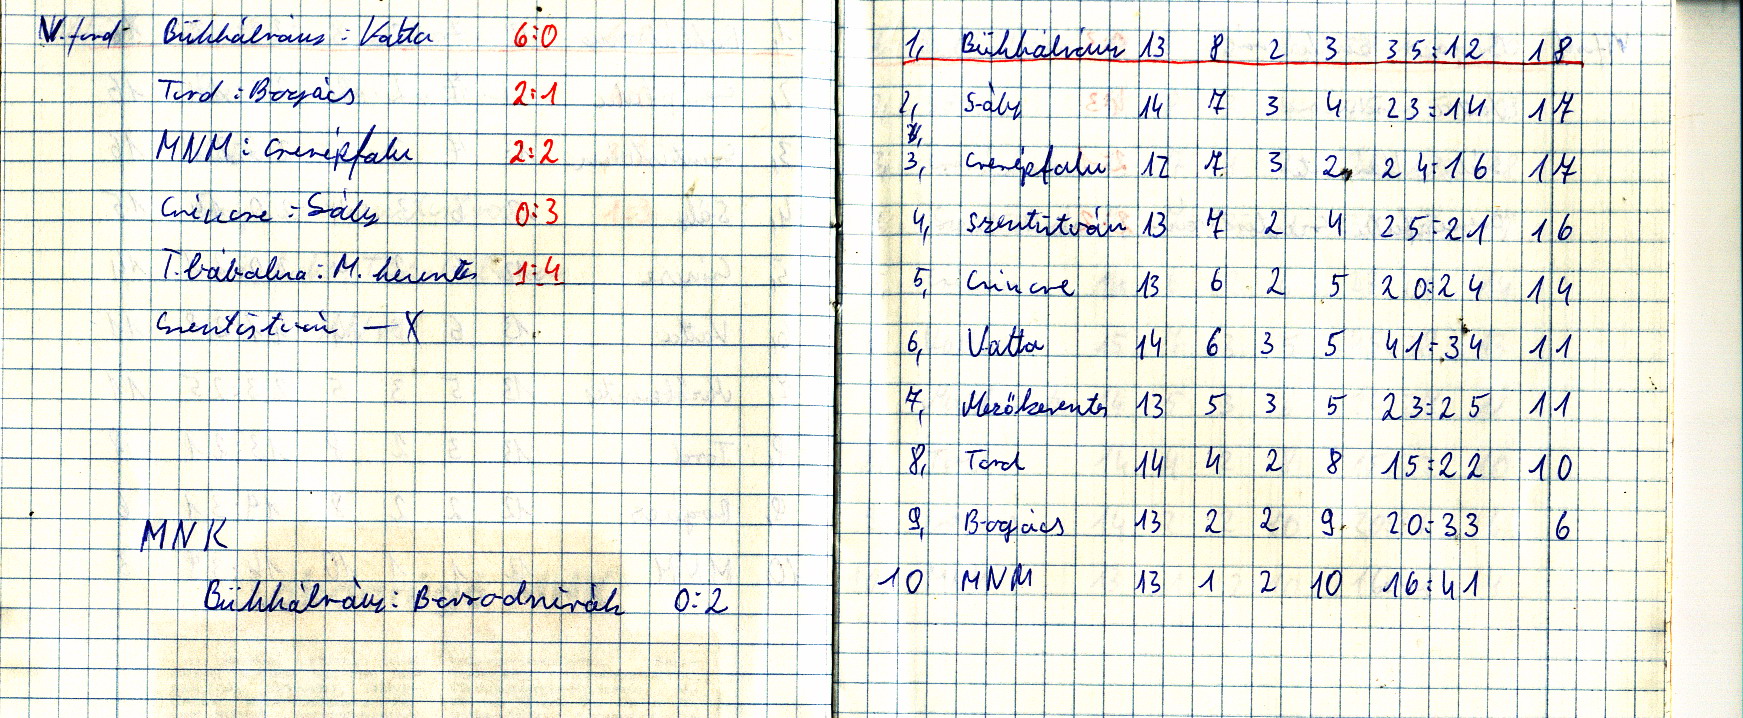 V. ford. Bükkábrány : Vatta 6:0
Tard : Bogács 2:1
MNM : Cserépfalu 2:2
Csincse : Sály 0:3
T.bábolna : M. keresztes 1:4
Szentistván — X
MNK
Bükkábrány : Borsodszirák 0:2
1, Bükkábrány 13 8 2 3 35:12 18
2, Sály 14 7 3 4 23:14 17
3, Cserépfalu 12 7 3 2 24:16 17
4, Szentistván 13 7 2 4 25:21 16
5, Csincse 13 6 2 5 20:24 14
6, Vatta 14 6 3 5 41:34 11
7, Mezőkeresztes 13 5 3 5 23:25 11
8, Tard 14 4 2 8 15:22 10
9, Bogács 13 2 2 9 20:33 6
10 MNM 13 1 2 10 16:41